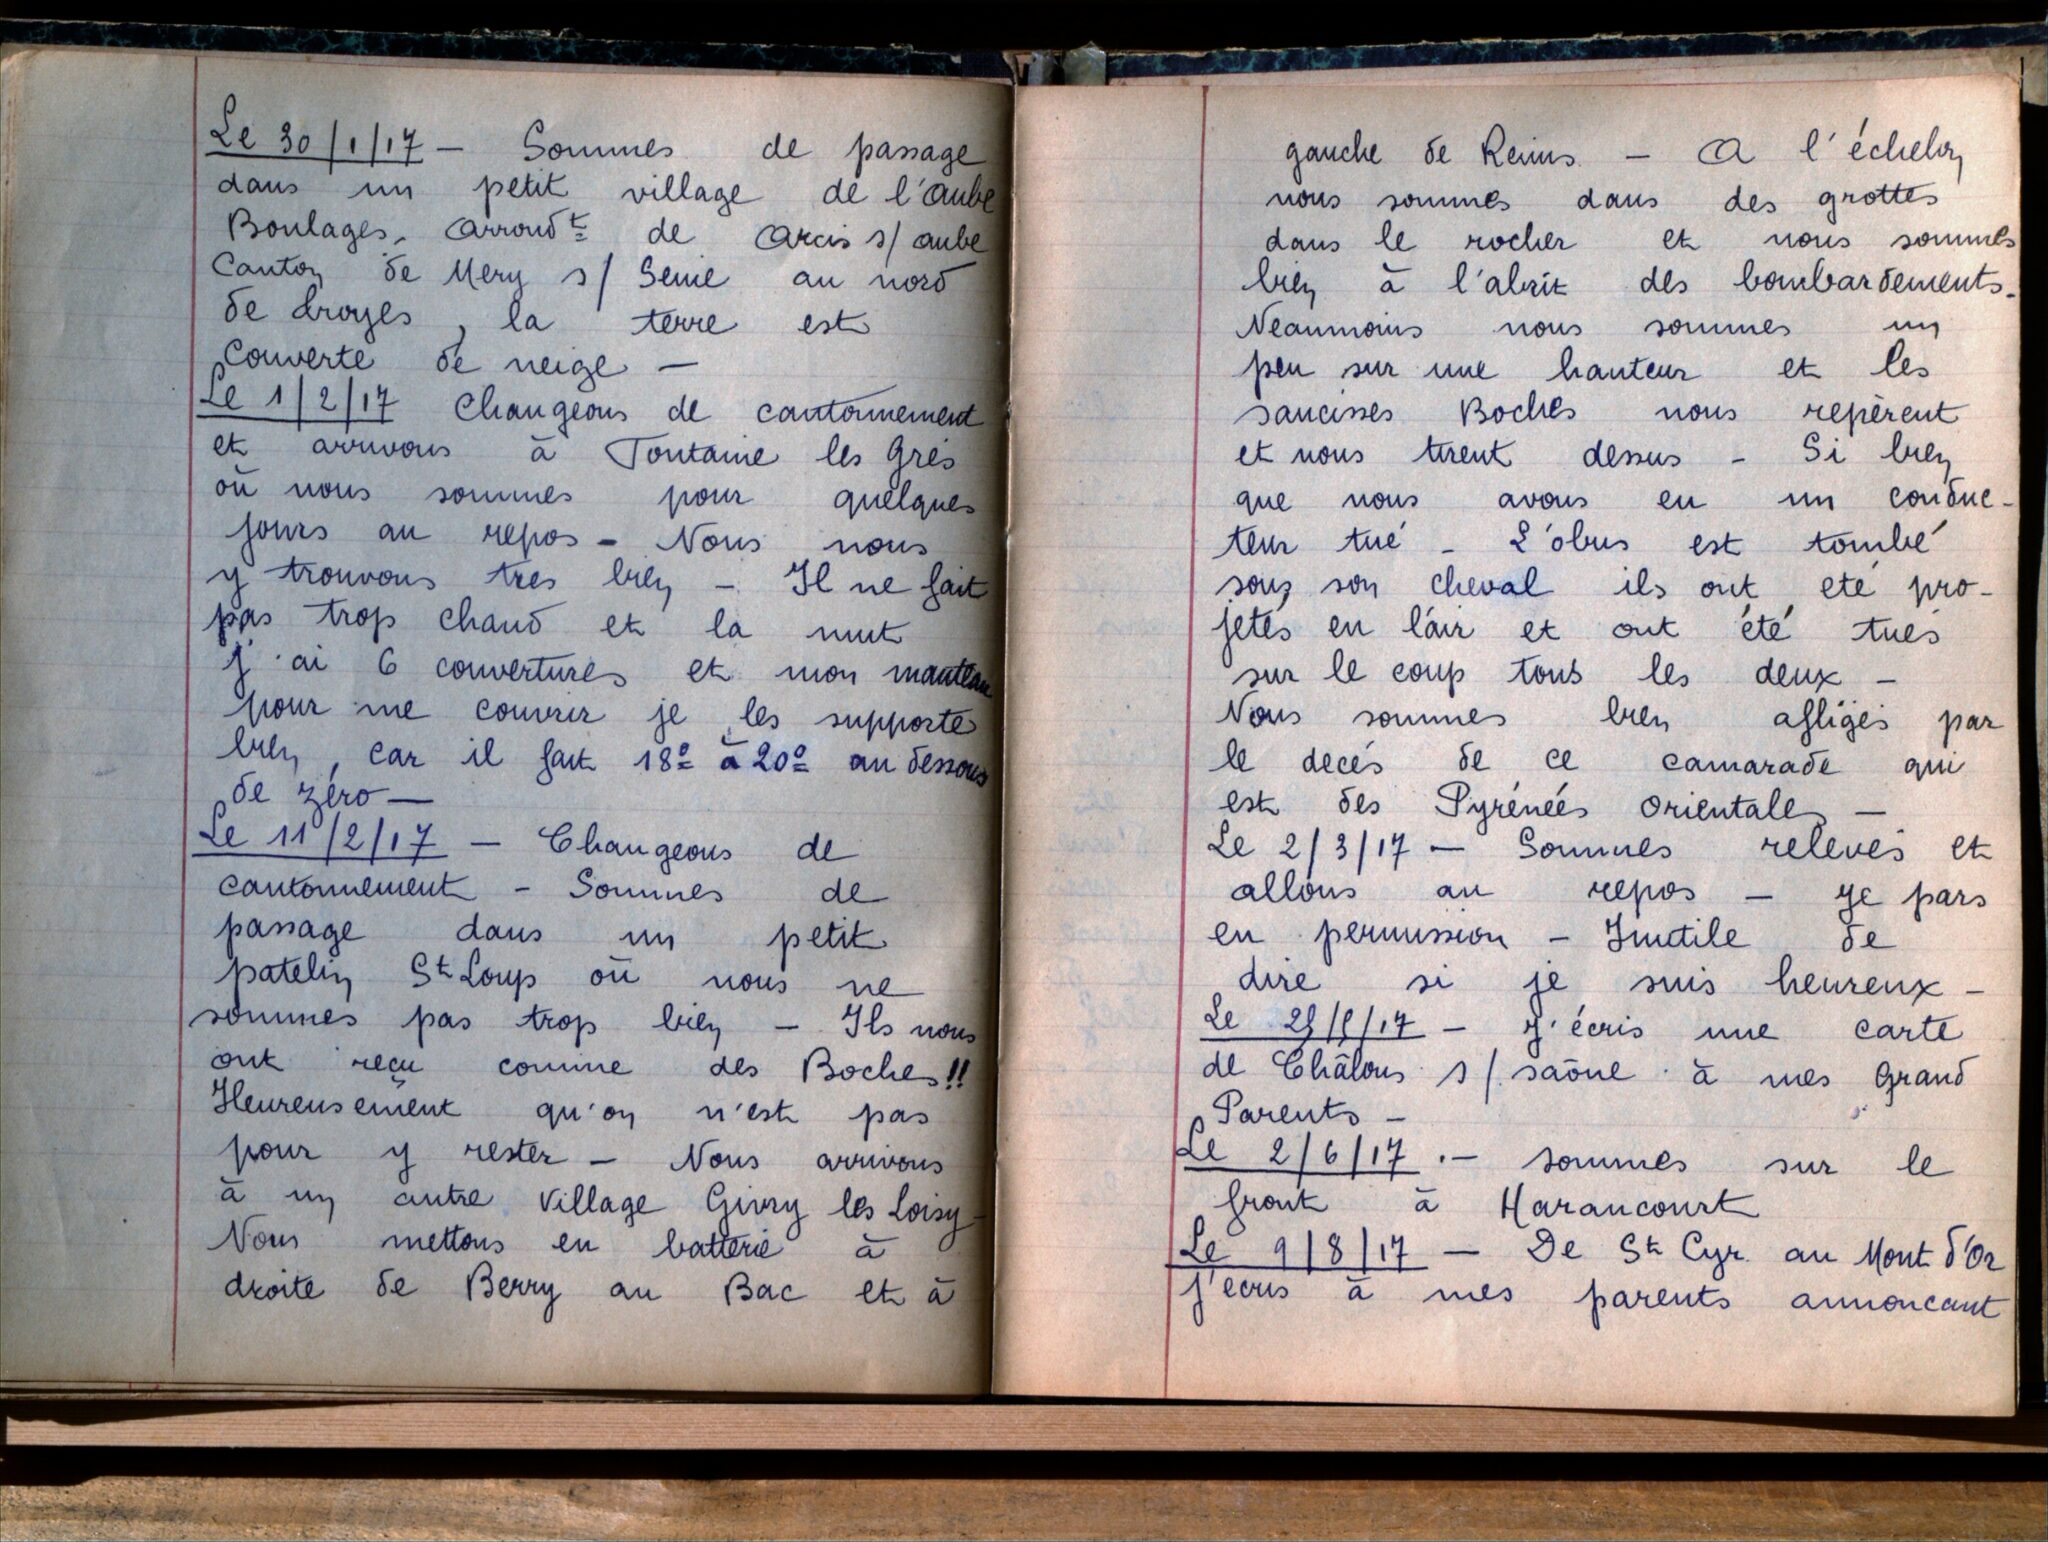 Le 30/1/17 — Sommes de passage
dans un petit village de l'Aube
Boulages, Arrondt de Arcis s/ aube
Canton de Mery s/ Seine au nord
de Troyes, la terre est
couverte de neige —
Le 1/2/17 Changeons de cantonnement
et arrivons à Fontaine les Grés
où nous sommes pour quelques
jours au repos – Nous nous
y trouvons tres bien – Il ne fait
pas trop chaud et la nuit
j'ai 6 couvertures et mon manteau
pour me couvrir je les supporte
bien, car il fait 18° à 20° au dessous
de zéro —
Le 11/2/17 – Changeons de
cantonnement – Sommes de
passage dans un petit
patelin St Loup où nous ne
sommes pas trop bien – Ils nous
ont reçu comme des Boches!!
Heureusement qu'on n'est pas
pour y rester – Nous arrivons
à un autre village Givry les Loisy –
Nous mettons en batterie à
droite de Berry au Bac et à
gauche de Reims – A l'échelon
nous sommes dans des grottes
dans le rocher et nous sommes
bien à l'abrit des bombardements.
Neaumoins nous sommes un
peu sur une hauteur et les
saucisses Boches nous repèrent
et nous tirent dessus – Si bien
que nous avons eu un conduc-
teur tué – L'obus est tombé
sous son cheval ils ont eté pro-
jetés en l'air et ont été tués
sur le coup tous les deux –
Nous sommes bien afligés par
le decés de ce camarade qui
est des Pyrénées Orientales —
Le 2/3/17 — Sommes relevés et
allons au repos – Je pars
en permission – Inutile de
dire si je suis heureux –
Le /17 – J'écris une carte
de Châlons s/ saône à mes Grand
Parents –
Le 2/6/17 .– sommes sur le
front à Harancourt
Le 9/8/17 — De St Cyr au Mont d'Or
j'ecris à mes parents annoncant